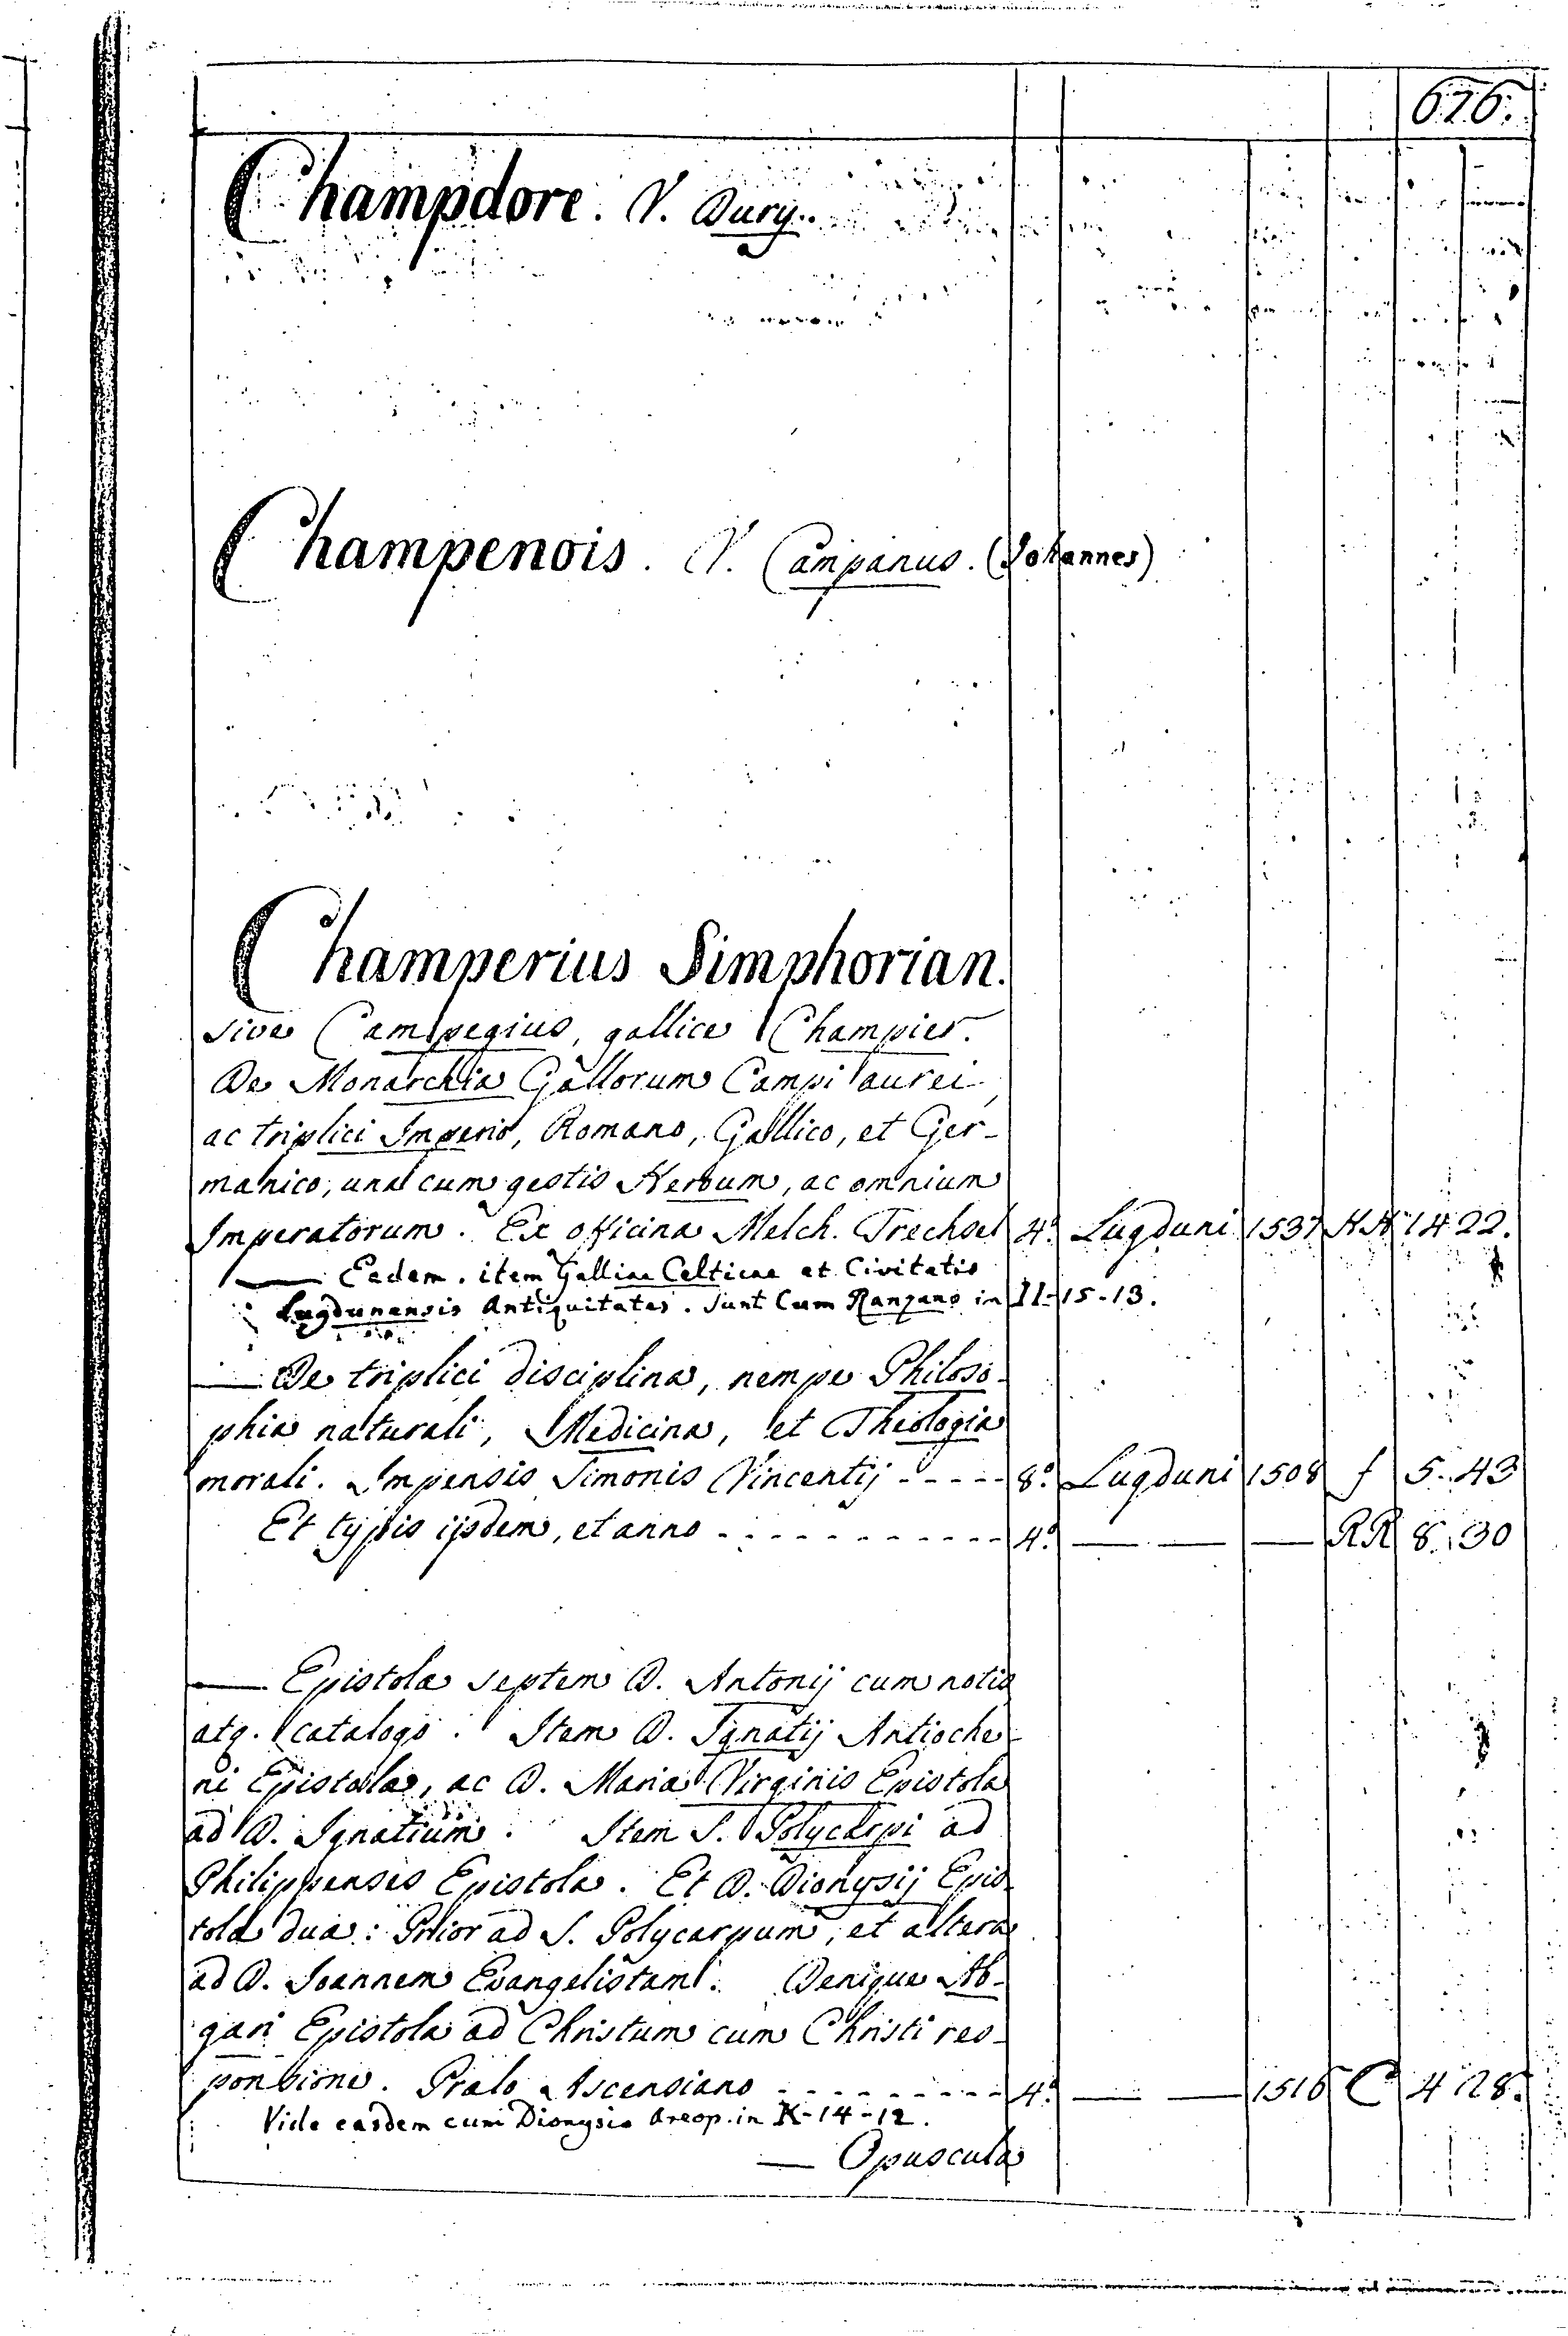 676.
Champdore. V. Dury.
Champenois. V. Campanus. (Johannes)
Champerius Simphorian.
sive Campegius, gallice Champier.
De Monarchia Gallorum Campi aurei,
ac triplici Imperio, Romano, Gallico, et Ger-
manico, una cum gestis Heroum, ac omnium
Imperatorum. Ex officina Melch. Trechsel 4.º Lugduni 1537 NN 14 22.
— Eadem. item Galliae Celticae et Civitatis
Lugdunensis Antiquitates. Sunt Cum Ranzano in II-15-13.
— De triplici disciplina, nempe Philoso-
phia naturali, Medicina, et Theologia
morali. Impensis Simonis Vincentij ----- 8.º Lugduni 1508 f 5. 43
Et typis ijsdem, et anno ------------ 4.º — — — RR 8. 30
— Epistola septem D. Antonij cum notis
atq. catalogo. Item D. Ignatij Antioche-
ni Epistola, ac D. Maria Virginis Epistola
ad D. Ignatium. Item S. Polycarpi ad
Philippenses Epistola. Et D. Dionysij Epis-
tola dua: Prior ad S. Polycarpum, et altera
ad D. Joannem Evangelistam. Denique Ab-
gari Epistola ad Christum cum Christi res-
ponsione. Pralo Ascensiano --------- 4.º — — 1516 C 4 28.
Vide easdem cum Dionysio Areop. in K-14-12.
— Opuscula